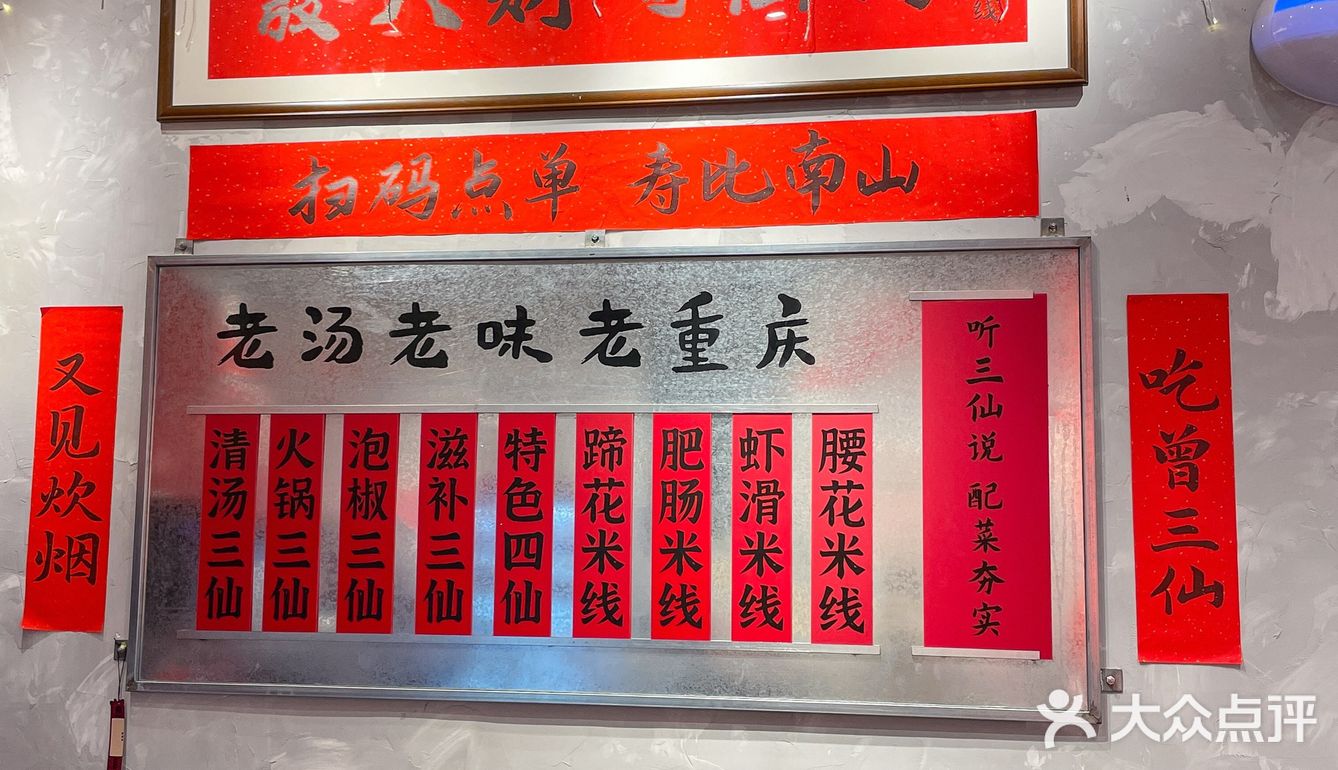 线
扫码点单 寿比南山
老汤老味老重庆
又见炊烟
清汤三仙
火锅三仙
泡椒三仙
滋补三仙
特色四仙
蹄花米线
肥肠米线
虾滑米线
腰花米线
听三仙说 配菜夯实
吃曾三仙
大众点评